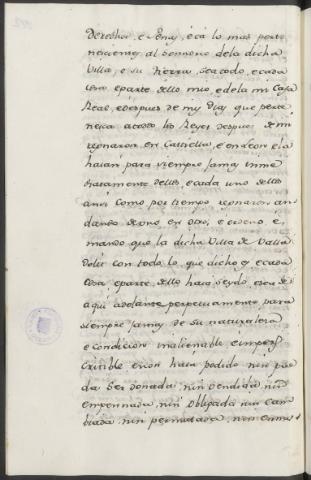 Derechos, e Penas, e a lo mas perte
necientes al Sennorio de la dicha
Villa, e su tierra, sea todo, e cada
cosa e parte dello mio, e de la mi Casa
Real, e despues de my Dias que perte
nesca a todos los Reyes despues de mi
reynaren en Castiella, e en Leon e la
haian para siempre Jamas inme
diatamente dellos, e cada uno dellos
ansi como por tiempo reynaren an
dando de uno en otro, e ordeno e
mando que la dicha Villa de Valla
dolit con todo lo que dicho es e cada
cosa e parte dello haia seydo e sea de
aqui adelante perpetuamente para
siempre Jamas de su naturaleza
e condicion inalienable e imperes
crivible e non haia podido nin pue
da ser donada, nin vendida, nin
empennada, nin obligada nin cam
biada, nin permutada, nin